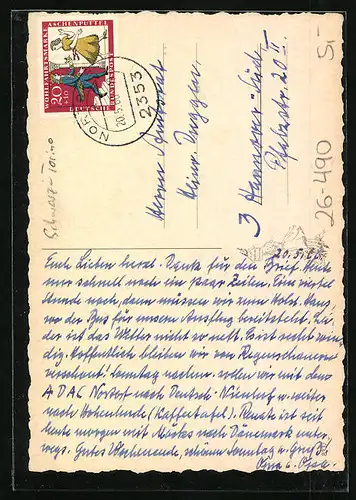 WOHLFAHRTSMARKE ASCHENPUTTEL
20
+10
DEUTSCHE BUNDESPOST
NOR
20.5.66
2353
Herrn Konrektor
Heinr. Duggen
3 Hannover-Süd
Pfalzstr. 20 II
Schwarz-
26-490
5,-
20.5.66
Euch Lieben herzl. Dank für den Brief. Heute
nur schnell noch ein paar Zeilen. Eine viertel
Stunde noch, dann müssen wir zum
wo der Bus für unseren Ausflug bereitsteht. Lei-
der ist das Wetter nicht so nett. Es ist recht win-
dig. Hoffentlich bleiben wir von Regenschauern
verschont! Sonntag nachm. wollen wir mit dem
ADAC Nortorf nach Deutsch-Nienhof u. weiter
nach Hohenlieth (Kaffeetafel). Renate ist seit
heute morgen mit nach Dänemark unter-
wegs. Gutes Wochenende, schönen Sonntag u. Grüße
Oma u. Opa.